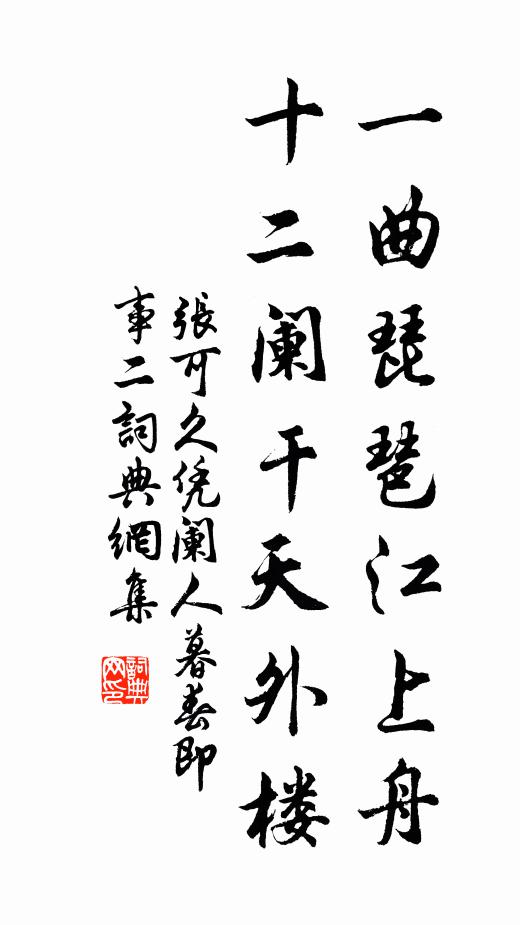 一曲琵琶江上舟
十二阑干天外楼
張可久凭阑人暮春即
事二詞典網集
詞典
网印